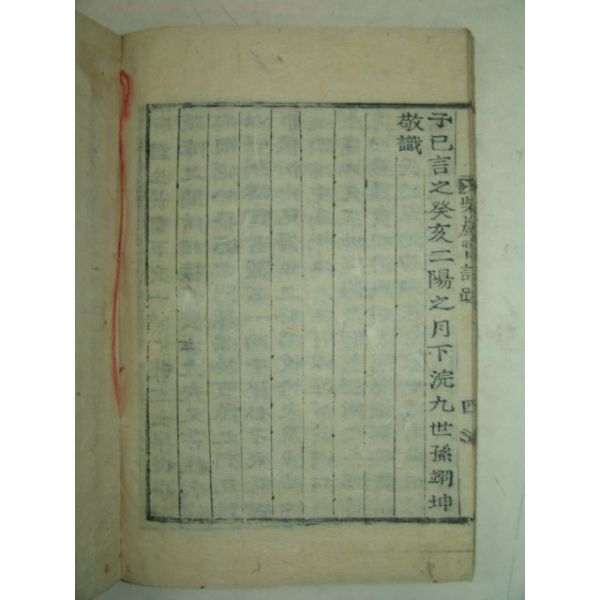 予已言之癸亥二陽之月下浣九世孫翊坤
敬識
四